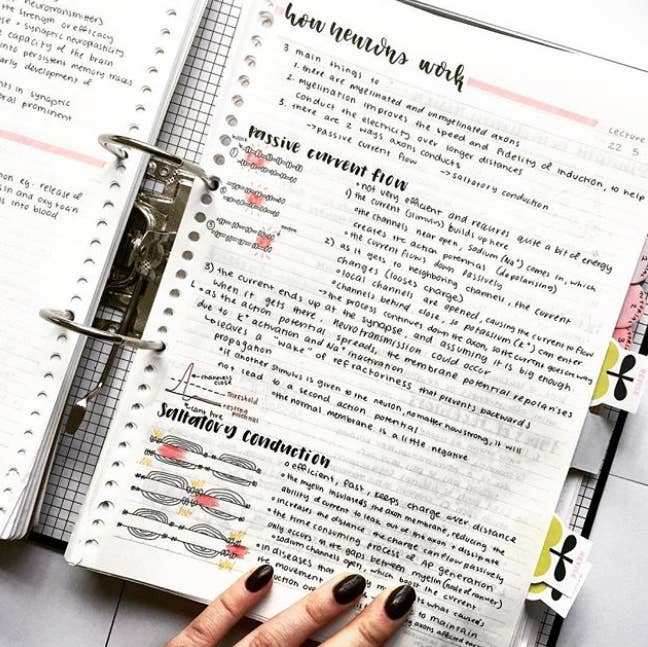 neurotransmitters
the strength or efficacy
synaptic neuroplasticity
capacity of the brain
into persistent memory traces
early development of
in synaptic
prominent
eg. release of
and oxytocin
into blood
how neurons work
Lecture
22 5
3 main things to
1. there are myelinated and unmyelinated axons
2. myelination improves the speed and fidelity of induction, to help
conduct the electricity over longer distances
3. there are 2 ways axons conducts
→passive current flow →saltatory conduction
Passive current flow
• not very efficient and requires quite a bit of energy
1) the current (stimulus) builds up here
• the channels near open, sodium (Na⁺) comes in, which
creates the action potential (depolarising)
• the current flows down passively
2) as it gets to neighboring channel, the current
changes (looses charge)
• local channels are opened, causing the current to flow
• channels behind close, so potassium (K⁺) can enter
→ the process continues down the axon, so the current goes one way
3) the current ends up at the synapse, and assuming it is big enough
when it gets there, neurotransmission could occur
• as the action potential spreads, the membrane potential repolarises
due to K⁺ activation and Na⁺ inactivation
↳ leaves a "wake" of refractoriness that prevents backwards
propagation
• if another stimulus is given to the neuron, no matter how strong, it will
not lead to a second action potential
• the normal membrane is a little negative
channels
close
threshold
resting
potential
can't fire
Saltatory conduction
• efficient, fast, keeps charge over distance
• the myelin insulates the axon membrane, reducing the
ability of current to leak out of the axon + dissipate
• increases the distance the charge can flow passively
• the time consuming process of AP generation
only occurs at the gaps between myelin (node of ranvier)
• sodium channels open, which boost the current
• in diseases that
the movement to maintain